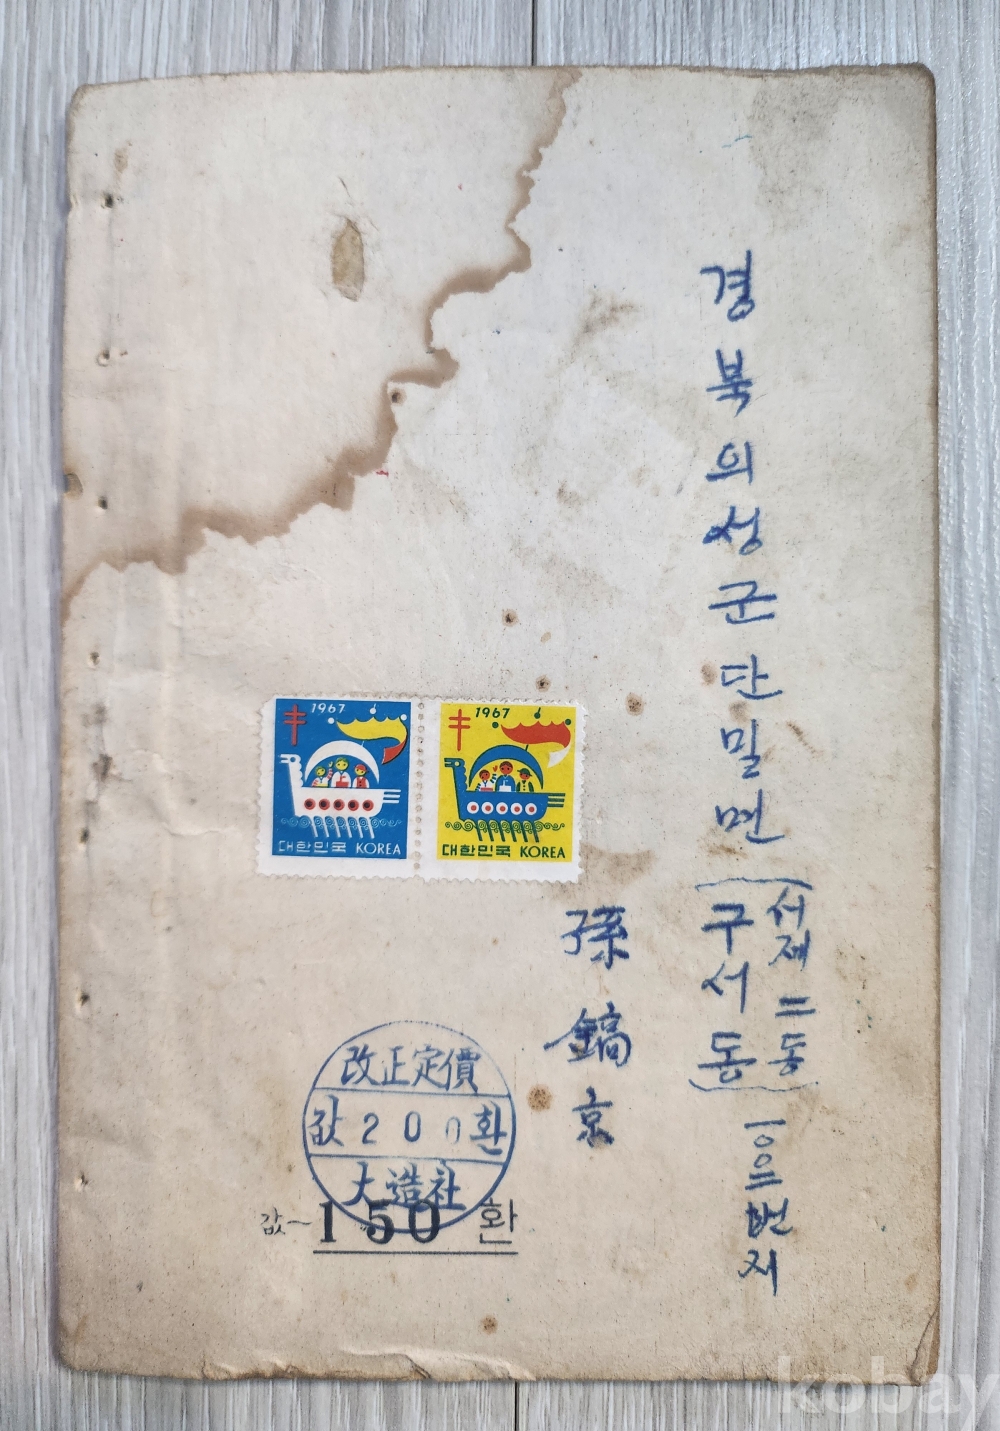 경북의성군단밀면
서제二동
구서동
一〇〇二번지
孫鎬京
1967
대한민국 KOREA
1967
대한민국 KOREA
改正定價
값 200환
大造社
값~150환
kobay